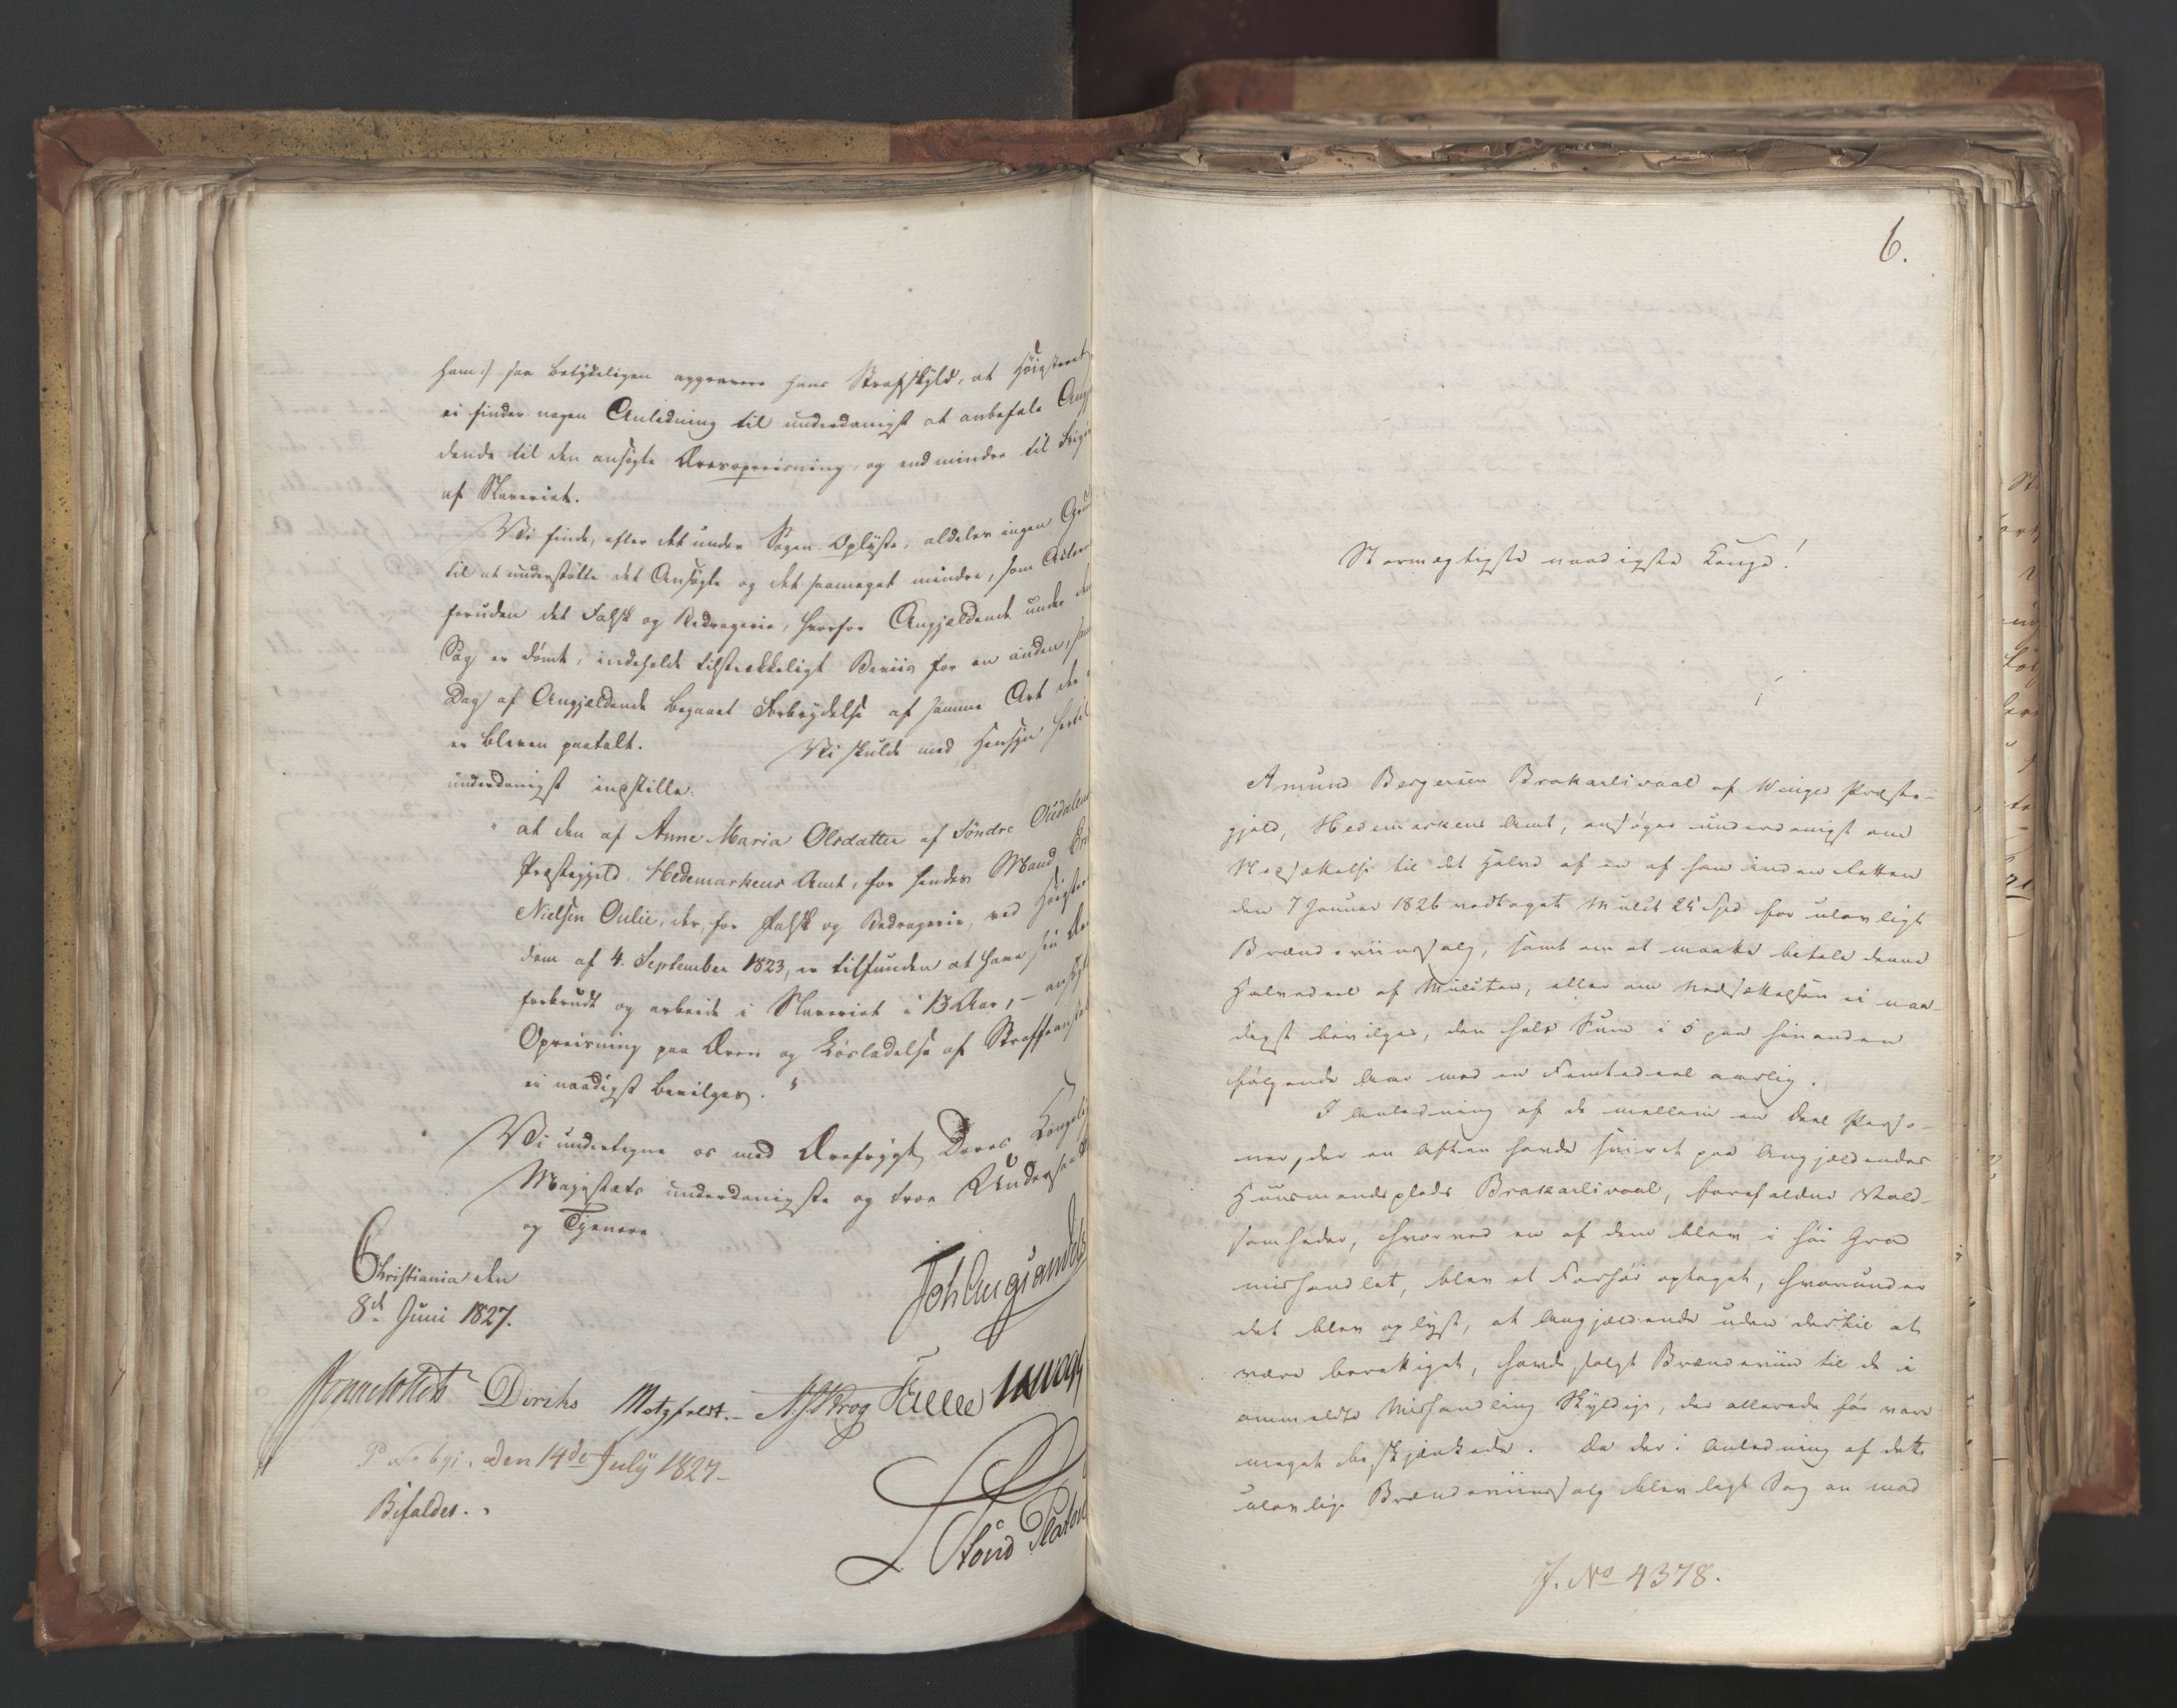 ham:/ saa betydeligen aggravere hans Strafskyld, at Høiesteret
ei finder nogen Anledning til underdanigst at anbefale Angjæl
dende til den ansøgte Æresopreisning, og end mindre til
af Slaveriet.
Vi finde, efter det under Sagen Oplyste, aldeles ingen Grund
til at understøtte det Ansøgte og det saameget mindre, som
foruden det Falsk og Bedragerie, hvorfor Angjeldende under den
Sag er dømt, indeholde tilstrækkeligt Beviis for en anden,
Dag af Angjeldende begaaet Forbrydelse af samme Art der
er bleven paatalt. Vi skulde med Hensyn hertil
underdanigst indstille:
"at den af Anne Maria Olsdatter af Søndre Oudalens
Præstegjeld Hedemarkens Amt, for hendes Mand
Nielsen Oulie, der, for Falsk og Bedragerie, ved Høiesterets
dom af 4. September 1823, er tilfunden at have sin Ære
forbrudt og arbeide i Slaveriet i 13 Aar, – ansøgte
Opreisning paa Æren og Løsladelse af Straffeanstalten
ei naadigst bevilges."
Vi undertegne os med Ærefrygt Deres Kongelige
Majestæts underdanigste og troe Undersaatter
og Tjenere.
Christiania den
8de Juni 1827.
Diriks Motzfeldt. Krog
den 14de July 1827
Bifaldes.
6.
Stormægtigste naadigste Konge!
Amund Bergersen Brakarlivaal af Winger Præste-
gjeld, Hedemarkens Amt, ansøger underdanigst om
Nedsættelse til det Halve af en af ham inden Retten
den 7 Januar 1826 vedtaget Mulct 25 Spd for ulovligt
Brændeviinssalg, samt om at maatte betale denne
Halvedeel af Mulcten, eller om Nedsættelsen ei naa-
digst bevilges, den hele Sum i 5 paa hinanden
følgende Aar med en Femtedeel aarlig.
I Anledning af de mellem en Deel Perso-
ner, der en Aften havde sviret paa Angjeldendes
Huusmandsplads Brakarlivaal, forefaldne Vold-
somheder, hvorved en af dem blev i høi Grad
mishandlet, blev et Forhør optaget, hvorunder
det blev oplyst, at Angjeldende uden dertil at
være berettiget, havde solgt Brændeviin til de i
ommeldte Mishandling Skyldige, der allerede før vare
meget beskjænkede. Da der i Anledning af dette
ulovlige Brændeviinssalg blev lagt Sag an mod
J. No 4378.